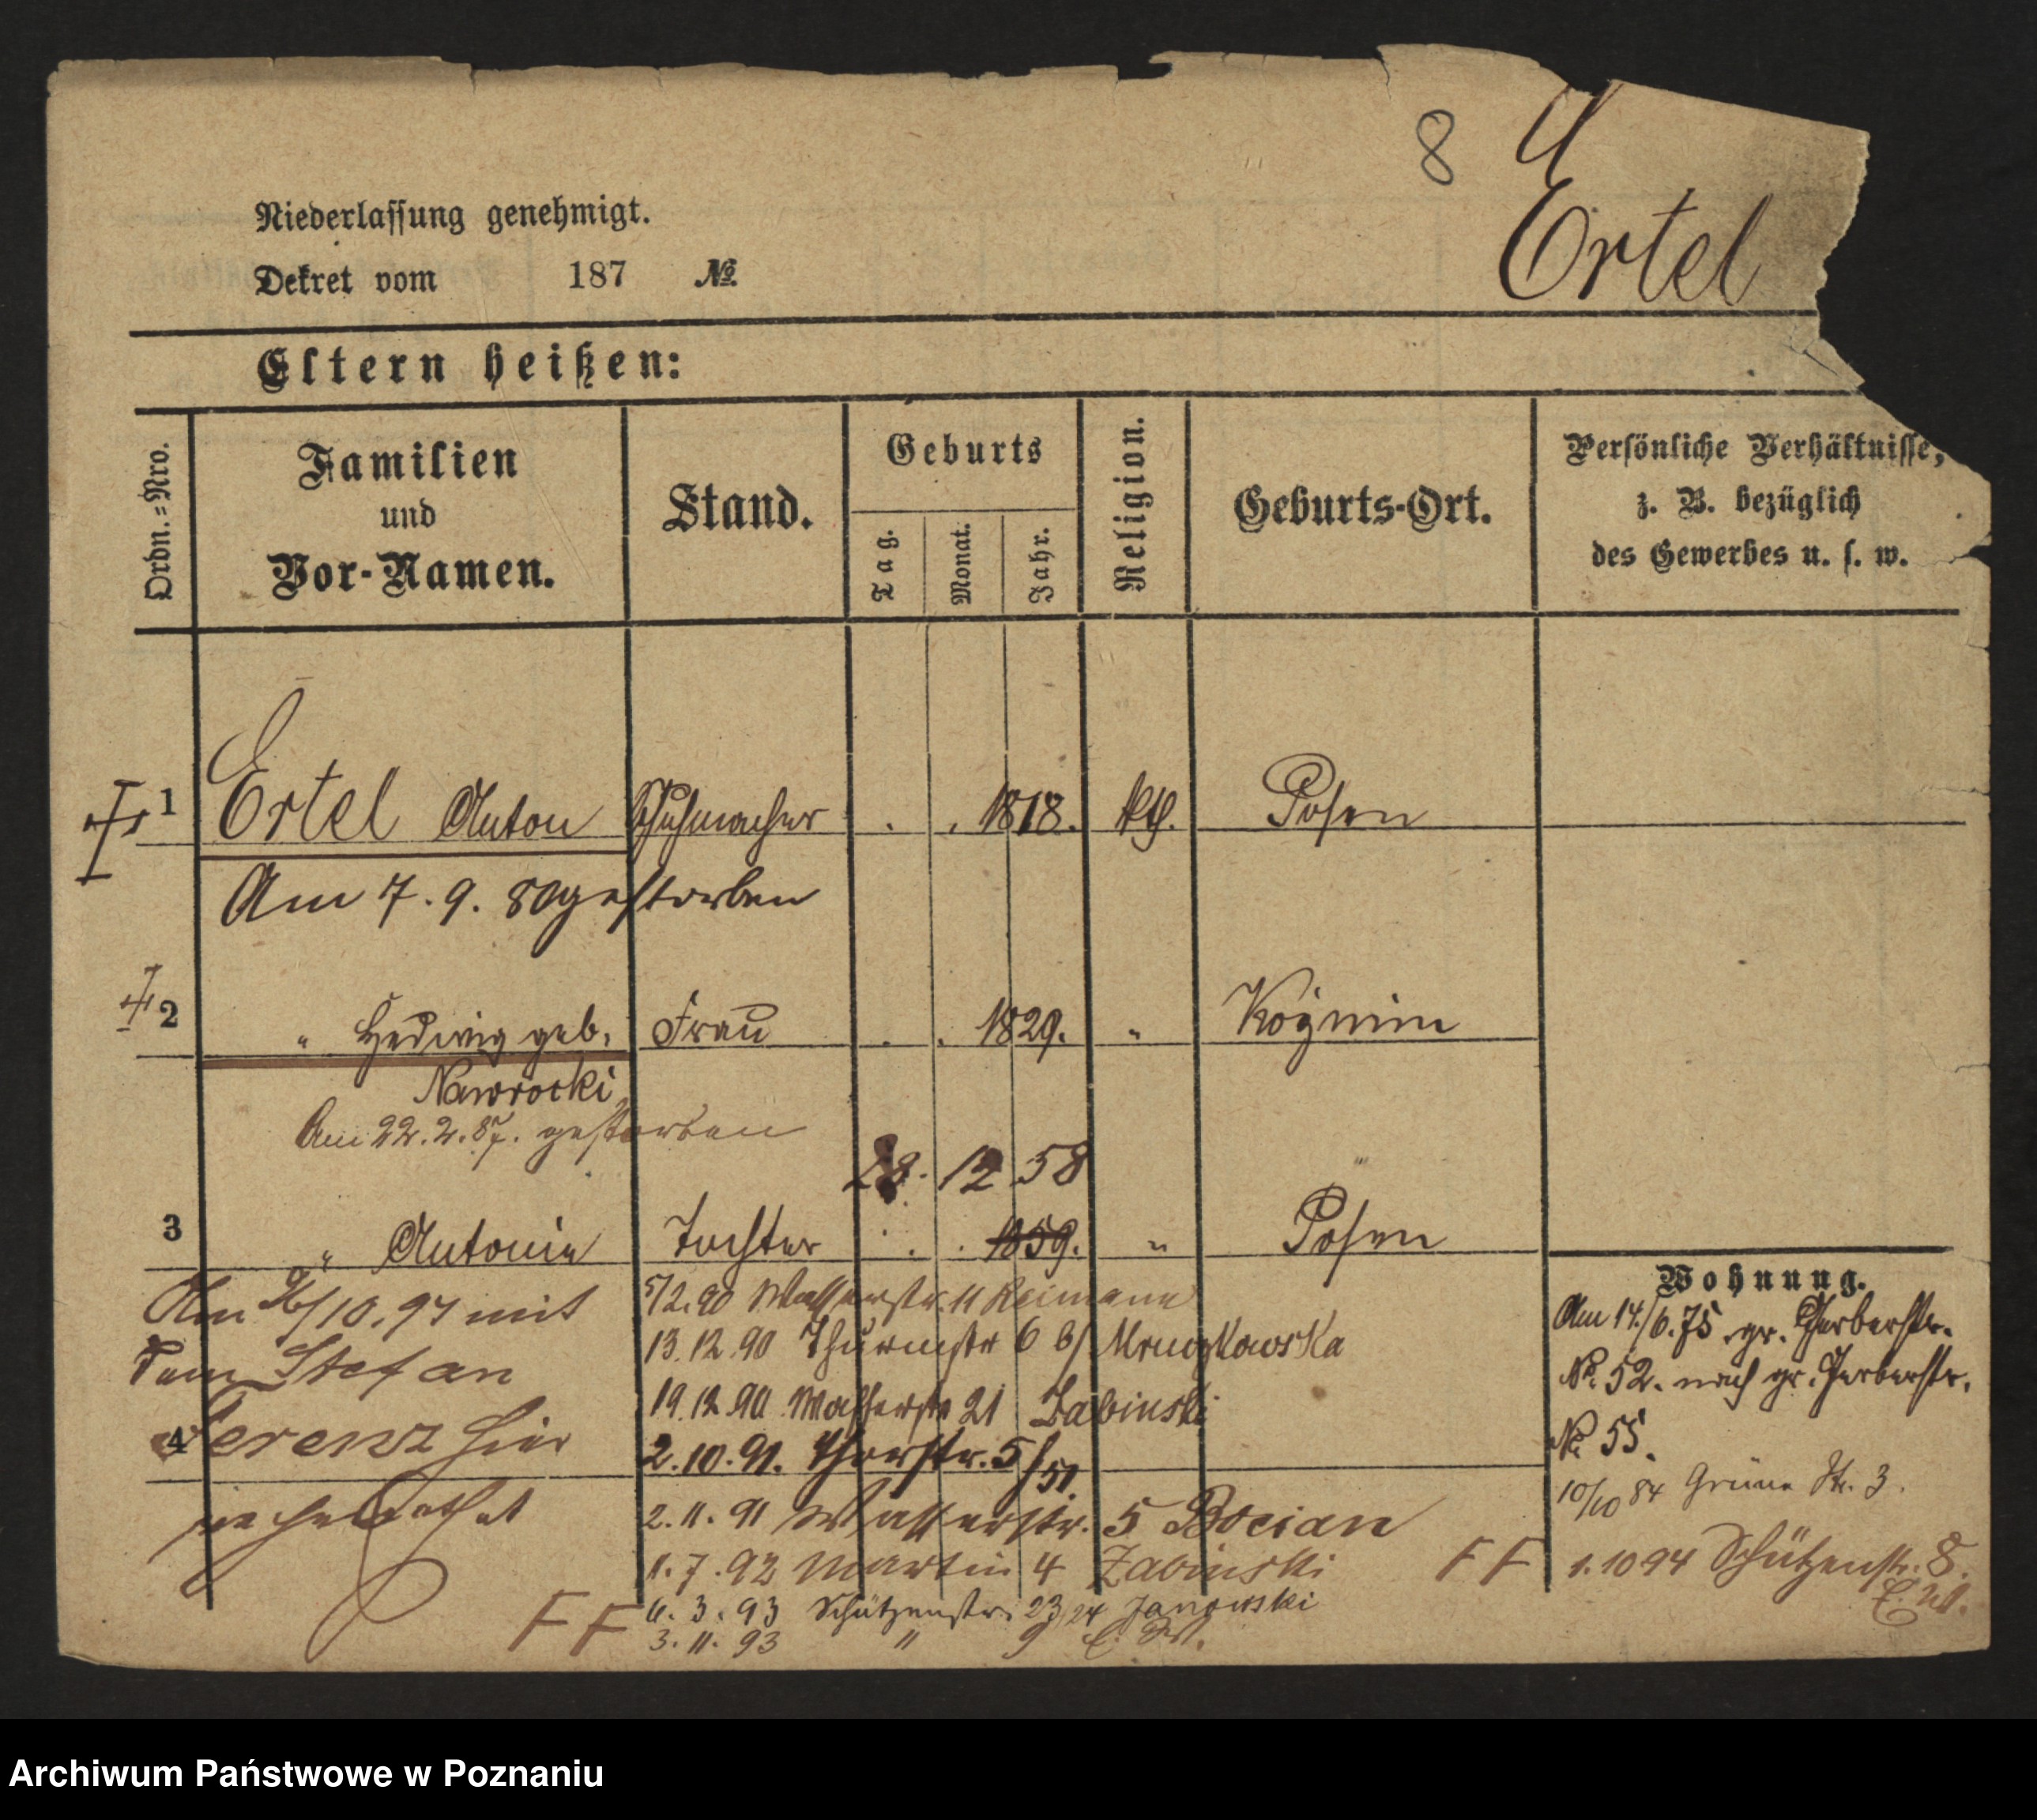 8
Ertel
Niederlassung genehmigt.
Dekret vom 187 №
Eltern heißen:
Ordn.=Nro. Familien und Vor-Namen. Stand. Geburts Tag. Monat. Jahr. Religion. Geburts-Ort. Persönliche Verhältnisse, z. B. bezüglich des Gewerbes u. s. w.
1 Ertel Anton Schuhmacher . . 1818. kth. Posen
Am 7. 9. 80 gestorben
2 " Hedwig geb. Frau . . 1829. " Kozmin
Nawrocki
Am 22. 2. 87. gestorben
28. 12 58
3 " Antonie Tochter . . 1859. " Posen
Am 26/10. 97 mit
dem Stefan
4 Ferenz hier
verheirathet
5/2. 90 Wasserstr. 11 Reimann
13. 12. 90 Thurmstr 6 b/ Mruczkowska
19. 12. 90 Wasserstr 21 Zabinski
2. 10. 91. Thorstr. 5 / 51.
2. 11. 91 Wasserstr. 5 Bocian
1. 7. 92 Martin 4 Zabinski
6. 3. 93 Schützenstr. 23/24 Janowski
3. 11. 93 " 9
FF
Wohnung.
Am 14./6. 75 gr. Gerberstr.
No. 52. nach gr. Gerberstr.
No 55.
10/10 84 Grüne Str. 3.
FF 1. 10 94 Schützenstr. 8.
Archiwum Państwowe w Poznaniu